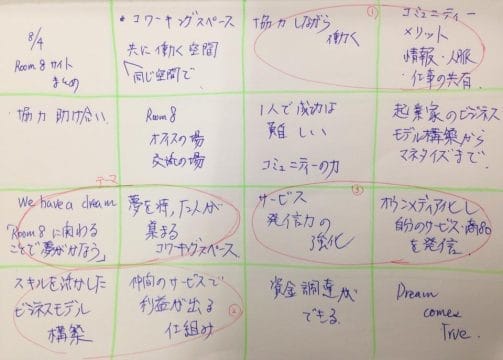 8/4
Room8サイト
まとめ
* コワーキングスペース
共に働く空間
同じ空間で
①
協力しながら
働く
コミュニティー
メリット
情報・人脈
・仕事の共有
協力 助け合い
Room8
オフィスの場
交流の場
1人で成功は
難しい
コミュニティーの力
起業家のビジネス
モデル構築から
マネタイズまで。
テーマ
We have a dream
「Room8に関わる
ことで夢がかなう」
夢を持った人が
集まる
コワーキングスペース
③
サービス
発信力の
強化
オウンメディア化し
自分のサービス・商品
を発信
スキルを活かした
ビジネスモデル
構築
②
仲間のサービスで
利益が出る
仕組み
資金調達が
できる
Dream
comes
True.